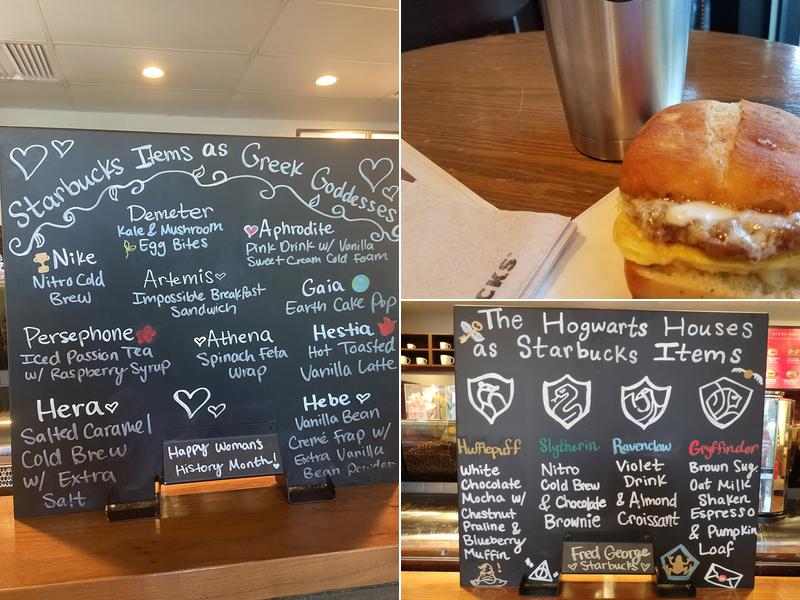 Starbucks Items as Greek Goddesses
Demeter
Kale & Mushroom
Egg Bites
Aphrodite
Pink Drink w/ Vanilla
Sweet Cream Cold Foam
Nike
Nitro Cold
Brew
Artemis
Impossible Breakfast
Sandwich
Gaia
Earth Cake Pop
Persephone
Iced Passion Tea
w/ Raspberry Syrup
Athena
Spinach Feta
Wrap
Hestia
Hot Toasted
Vanilla Latte
Hera
Salted Caramel
Cold Brew
w/ Extra
Salt
Hebe
Vanilla Bean
Creme Frap w/
Extra Vanilla
Bean Powder
Happy Woman's
History Month!
The Hogwarts Houses
as Starbucks Items
Hufflepuff
White
Chocolate
Mocha w/
Chestnut
Praline &
Blueberry
Muffin
Slytherin
Nitro
Cold Brew
& Chocolate
Brownie
Ravenclaw
Violet
Drink
& Almond
Croissant
Gryffindor
Brown Sug
Oat Milk
Shaken
Espresso
& Pumpkin
Loaf
Fred George
Starbucks